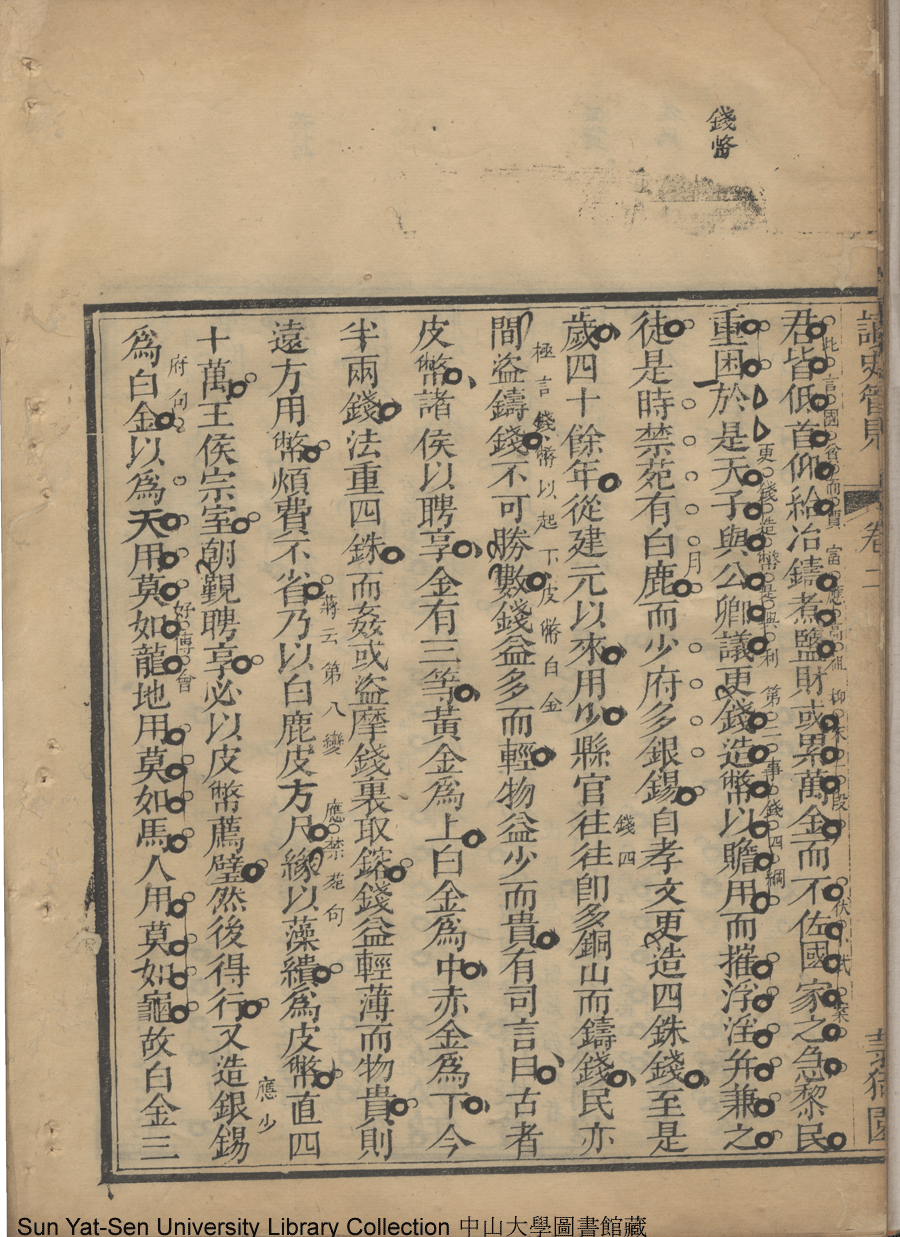 錢幣
讀史管
卷二
君皆低首仰給冶鑄煮鹽財或累萬金而不佐國家之急黎民
此言國貧而賈富應高祖
段伏式案
重困於是天子與公卿議更錢造幣以贍用而摧浮淫并兼之
更錢造幣是興利第二事錢四綱
徒是時禁苑有白鹿而少府多銀錫自孝文更造四銖錢至是
錢四
歲四十餘年從建元以來用少縣官往往即多銅山而鑄錢民亦
間盜鑄錢不可勝數錢益多而輕物益少而貴有司言曰古者
極言錢幣以起下皮幣白金
皮幣諸侯以聘享金有三等黃金為上白金為中赤金為下今
半兩錢法重四銖而姦或盜摩錢裏取鋊錢益輕薄而物貴則
遠方用幣煩費不省乃以白鹿皮方尺緣以藻繢為皮幣直四
蔣云第八變
應禁苑句
十萬王侯宗室朝覲聘享必以皮幣薦璧然後得行又造銀錫
應少
府句
為白金以為天用莫如龍地用莫如馬人用莫如龜故白金三
好傅會
Sun Yat-Sen University Library Collection 中山大學圖書館藏